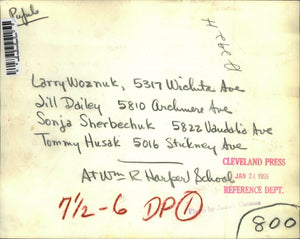 Pupils
Larry Woznuk, 5317 Wichita Ave
Jill Dailey 5810 Archmere Ave
Sonja Sherbechuk 5822 Vandalia Ave
Tommy Husak 5016 Strikney Ave
At Wm R Harper School
CLEVELAND PRESS
JAN 24 1955
REFERENCE DEPT.
7 1/2 - 6 DP 1
Photo by
800